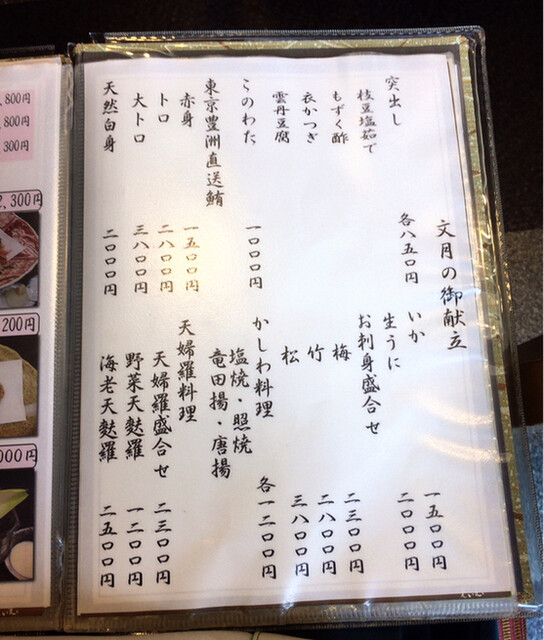 文月の御献立
突出し 各八五〇円
枝豆塩茹で
もずく酢
衣かつぎ
雲丹豆腐
このわた 一〇〇〇円
東京豊洲直送鮪
赤身 一五〇〇円
トロ 二八〇〇円
大トロ 三八〇〇円
天然白身 二〇〇〇円
いか 一五〇〇円
生うに 二〇〇〇円
お刺身盛合せ
梅 二三〇〇円
竹 二八〇〇円
松 三八〇〇円
かしわ料理 各一二〇〇円
塩焼・照焼
竜田揚・唐揚
天婦羅料理
天婦羅盛合せ 二三〇〇円
野菜天麩羅 一二〇〇円
海老天麩羅 二五〇〇円
,800円
,800円
300円
2,300円
200円
000円